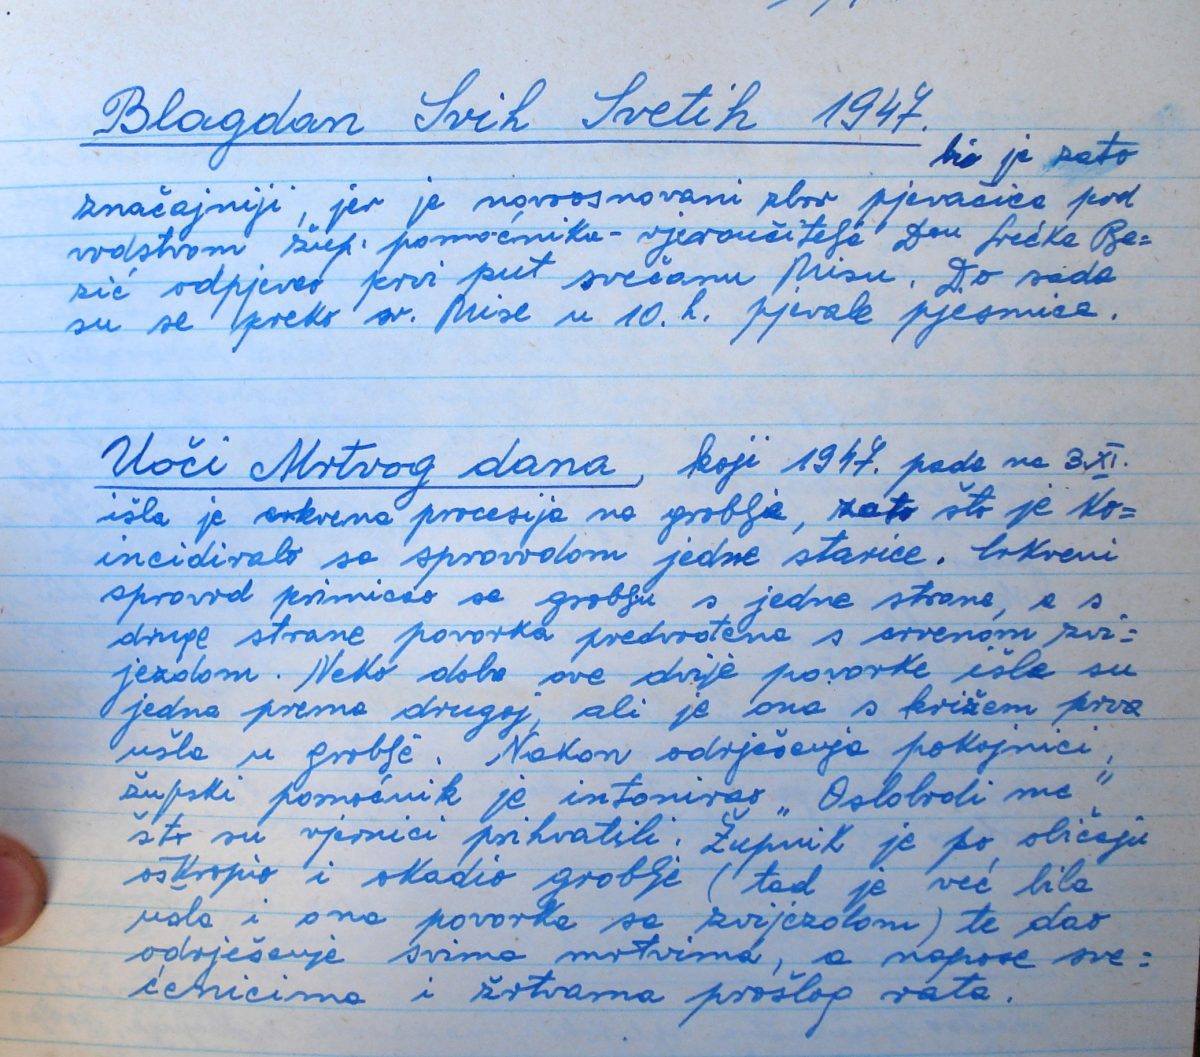 Blagdan Svih Svetih 1947.
bio je zato
značajniji, jer je novoosnovani zbor pjevačica pod
vodstvom žup. pomoćnika-vjeroučitelja Don Srećka Be=
zić odpjevao prvi put svečanu Misu. Do sada
su se preko sv. Mise u 10. h. pjevale pjesmice.
Uoči Mrtvog dana, koji 1947. pada na 3.XI.
išla je crkvena procesija na groblje, zato što je ko=
incidiralo sa sprovodom jedne starice. Crkveni
sprovod primicao se groblju s jedne strane, a s
druge strane povorka predvođena s crvenom zvi=
jezdom. Neko doba ove dvije povorke išle su
jedna prema drugoj, ali je ona s križem prva
ušla u groblje. Nakon odrješenja pokojnici,
župski pomoćnik je intonirao „Oslobodi me"
što su vjernici prihvatili. Župnik je po običaju
oškropio i okadio groblje (tad je već bila
ušla i ona povorka sa zvijezdom) te dao
odrješenje svima mrtvima, a napose sve=
ćenicima i žrtvama prošlog rata.